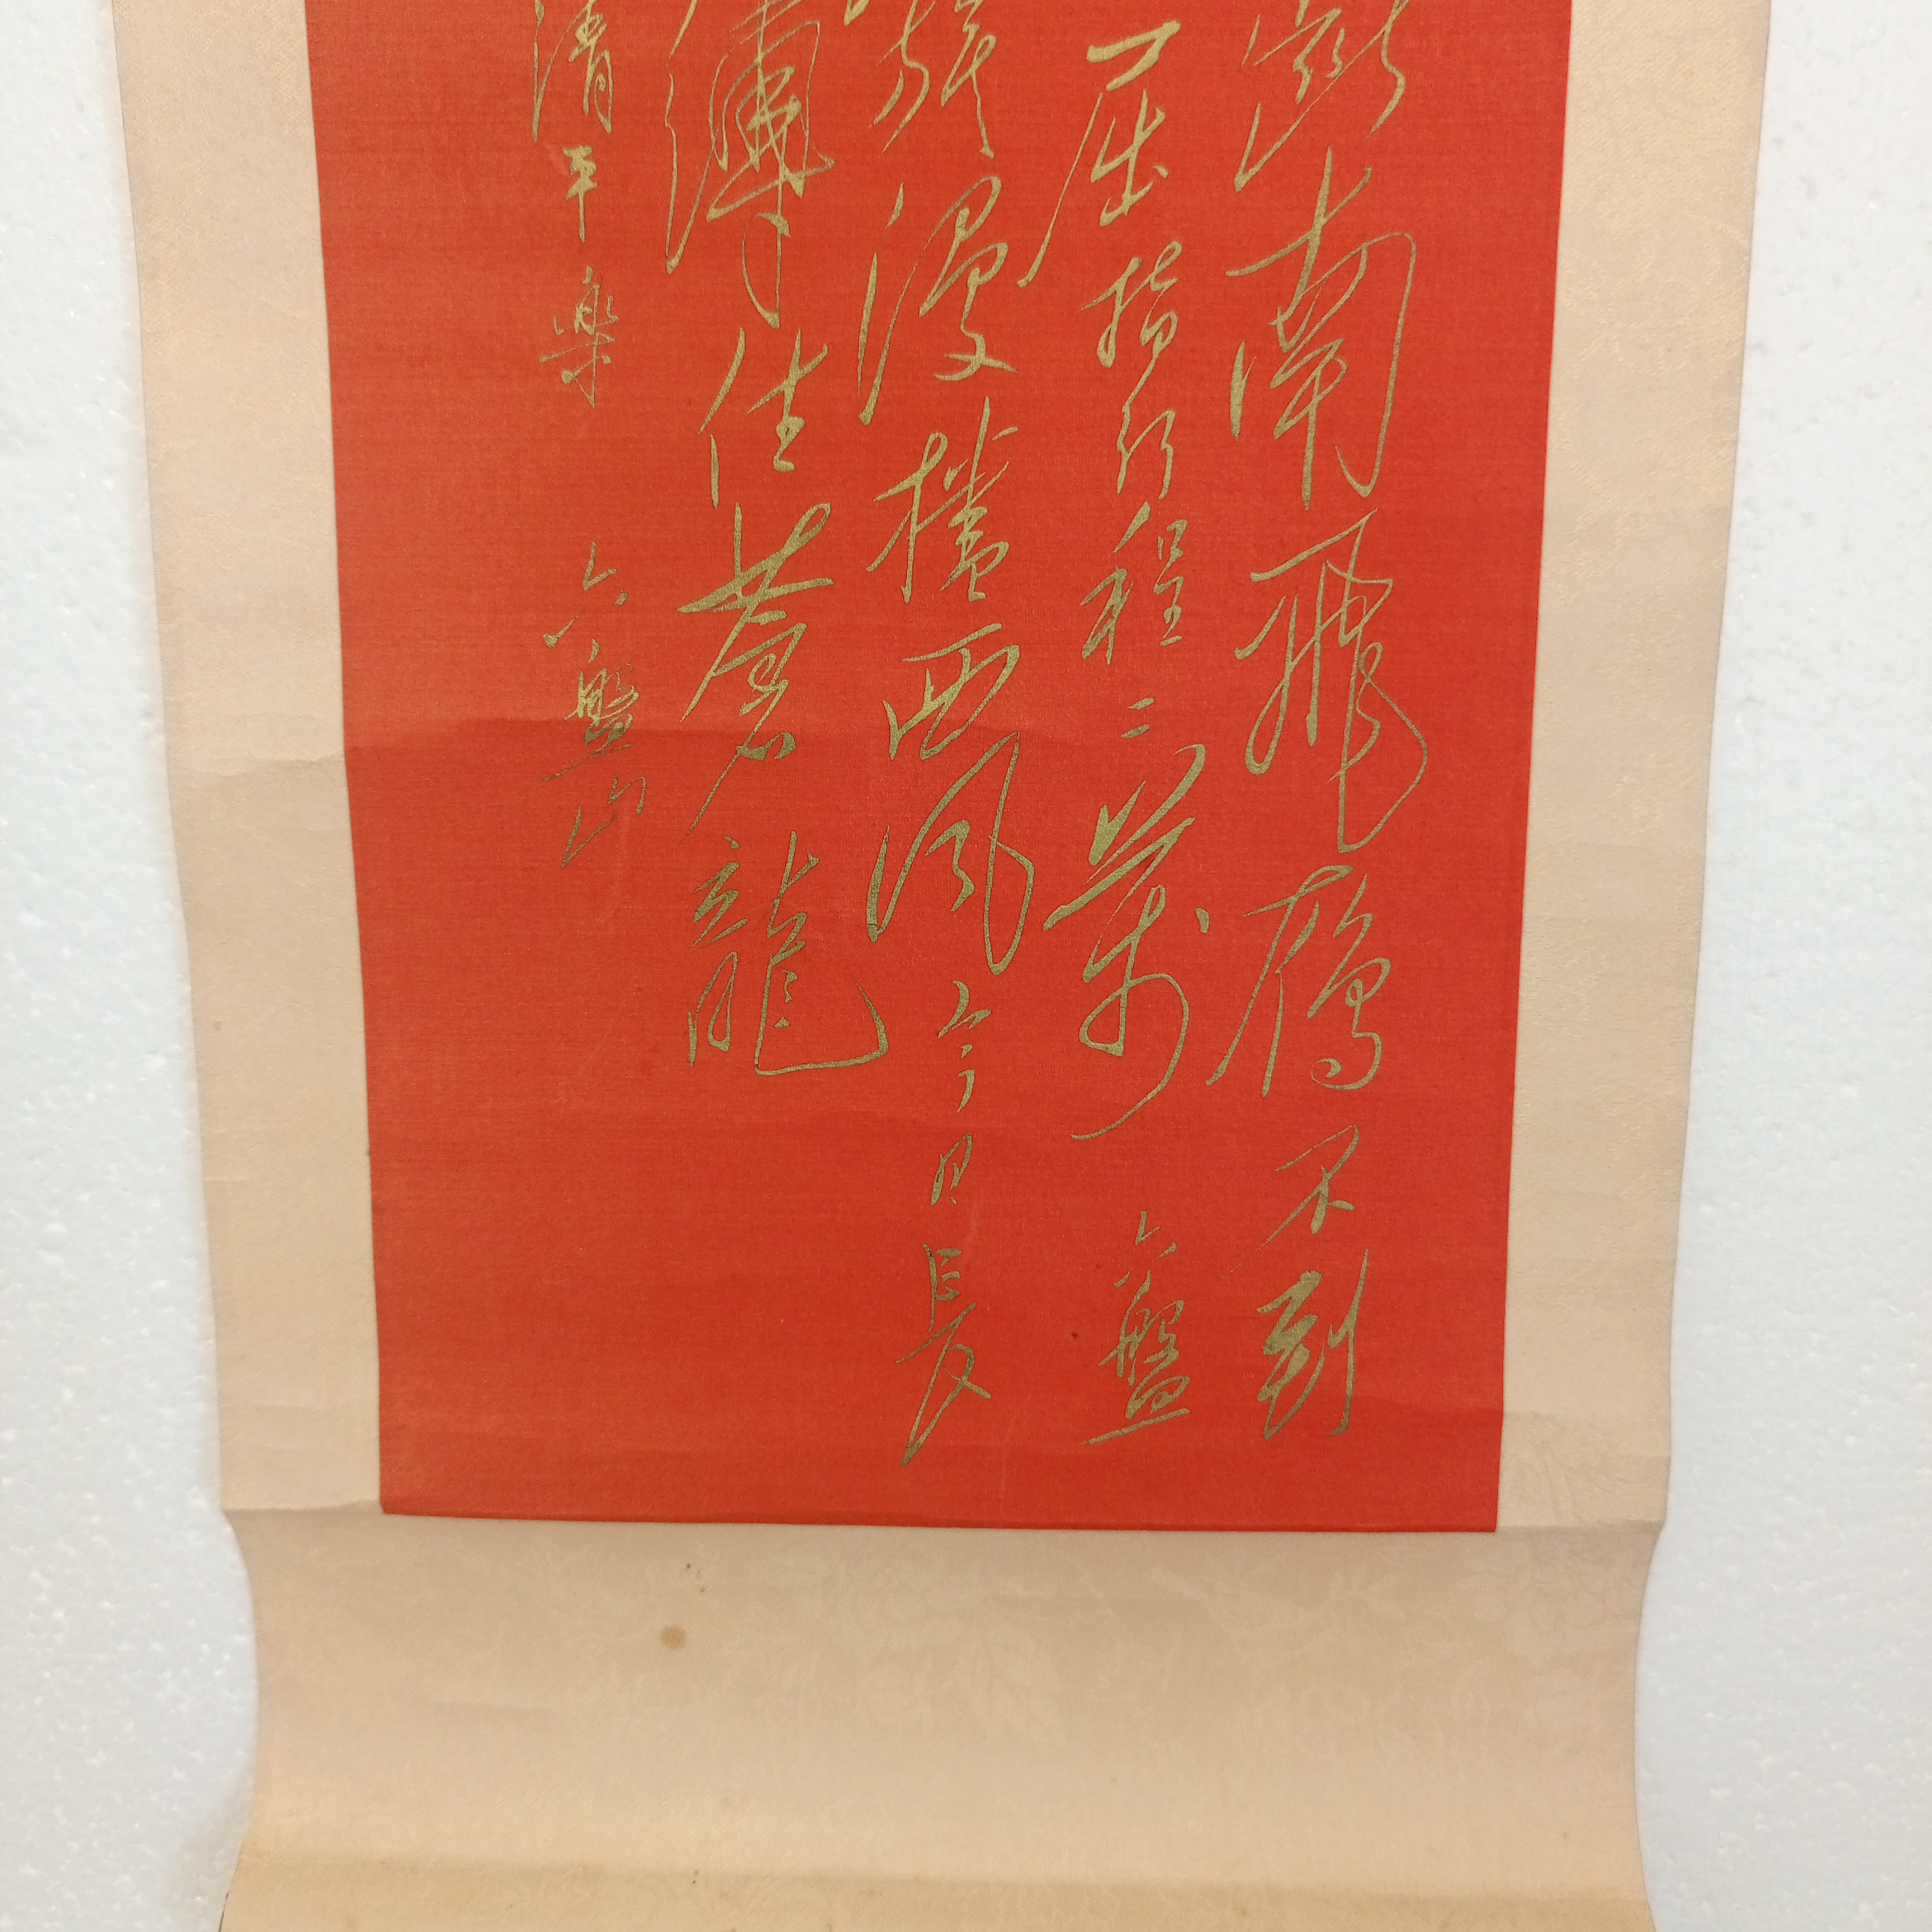 斷南飛鴈不到
屈指行程二萬六盤
旗漫捲西風今日長
縛住蒼龍
清平樂 六盤山